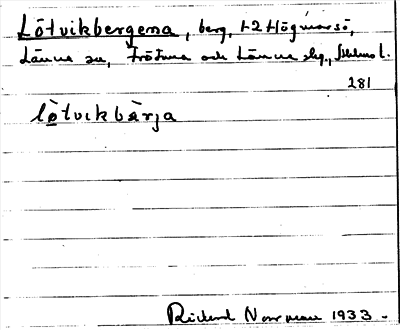 Lötvikbergena, berg, t 2 Högmarsö,
Länna sn, Frötuna och Länna skg., Sthlms l.
281
lö̀tvikbærja
Rickard Norrman 1933 -